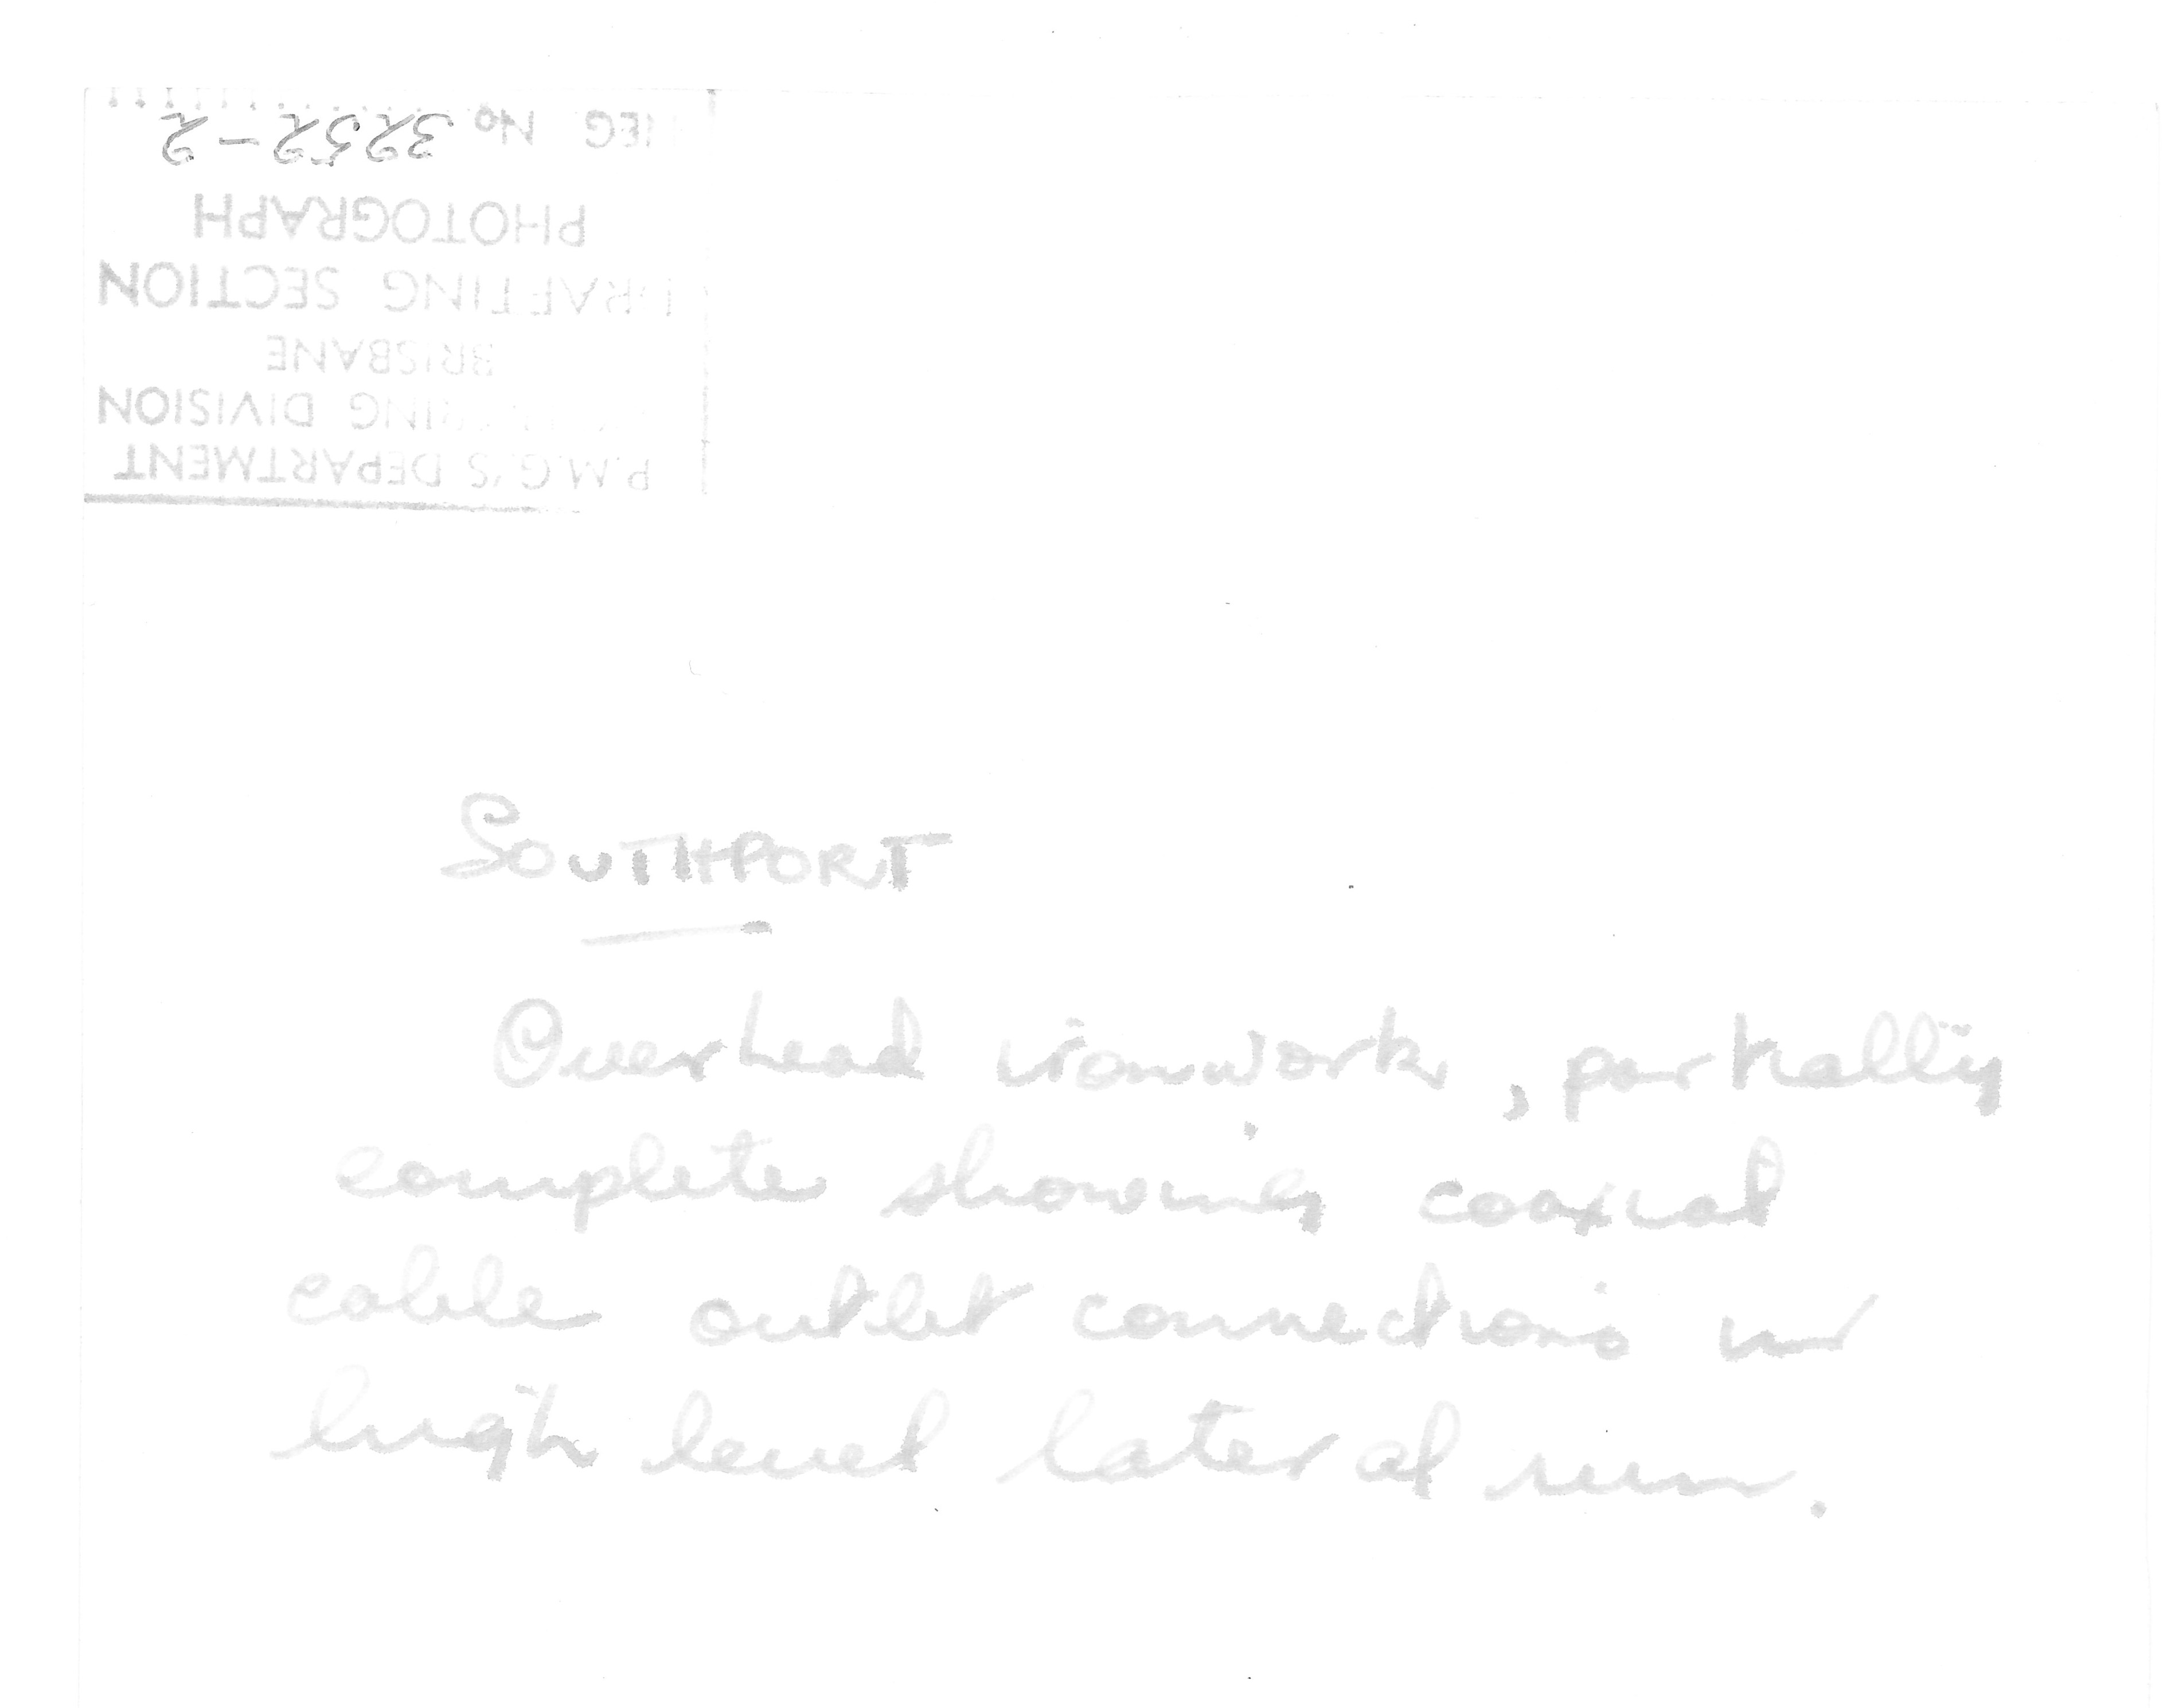 P.M.G.'S DEPARTMENT
DIVISION
BRISBANE
DRAFTING SECTION
PHOTOGRAPH
REG No 3252-2
SOUTHPORT
Overhead ironwork, partially
complete showing coaxial
cable outlet connections in
high level lateral run.